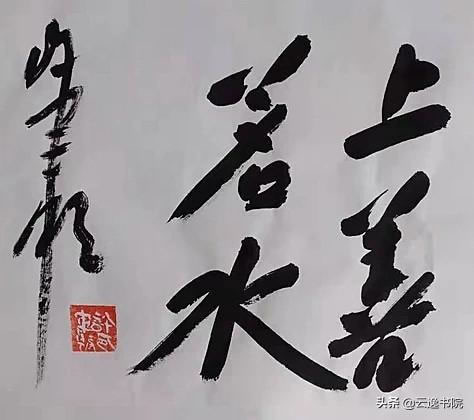 上善
若水
头条 @云逸书院